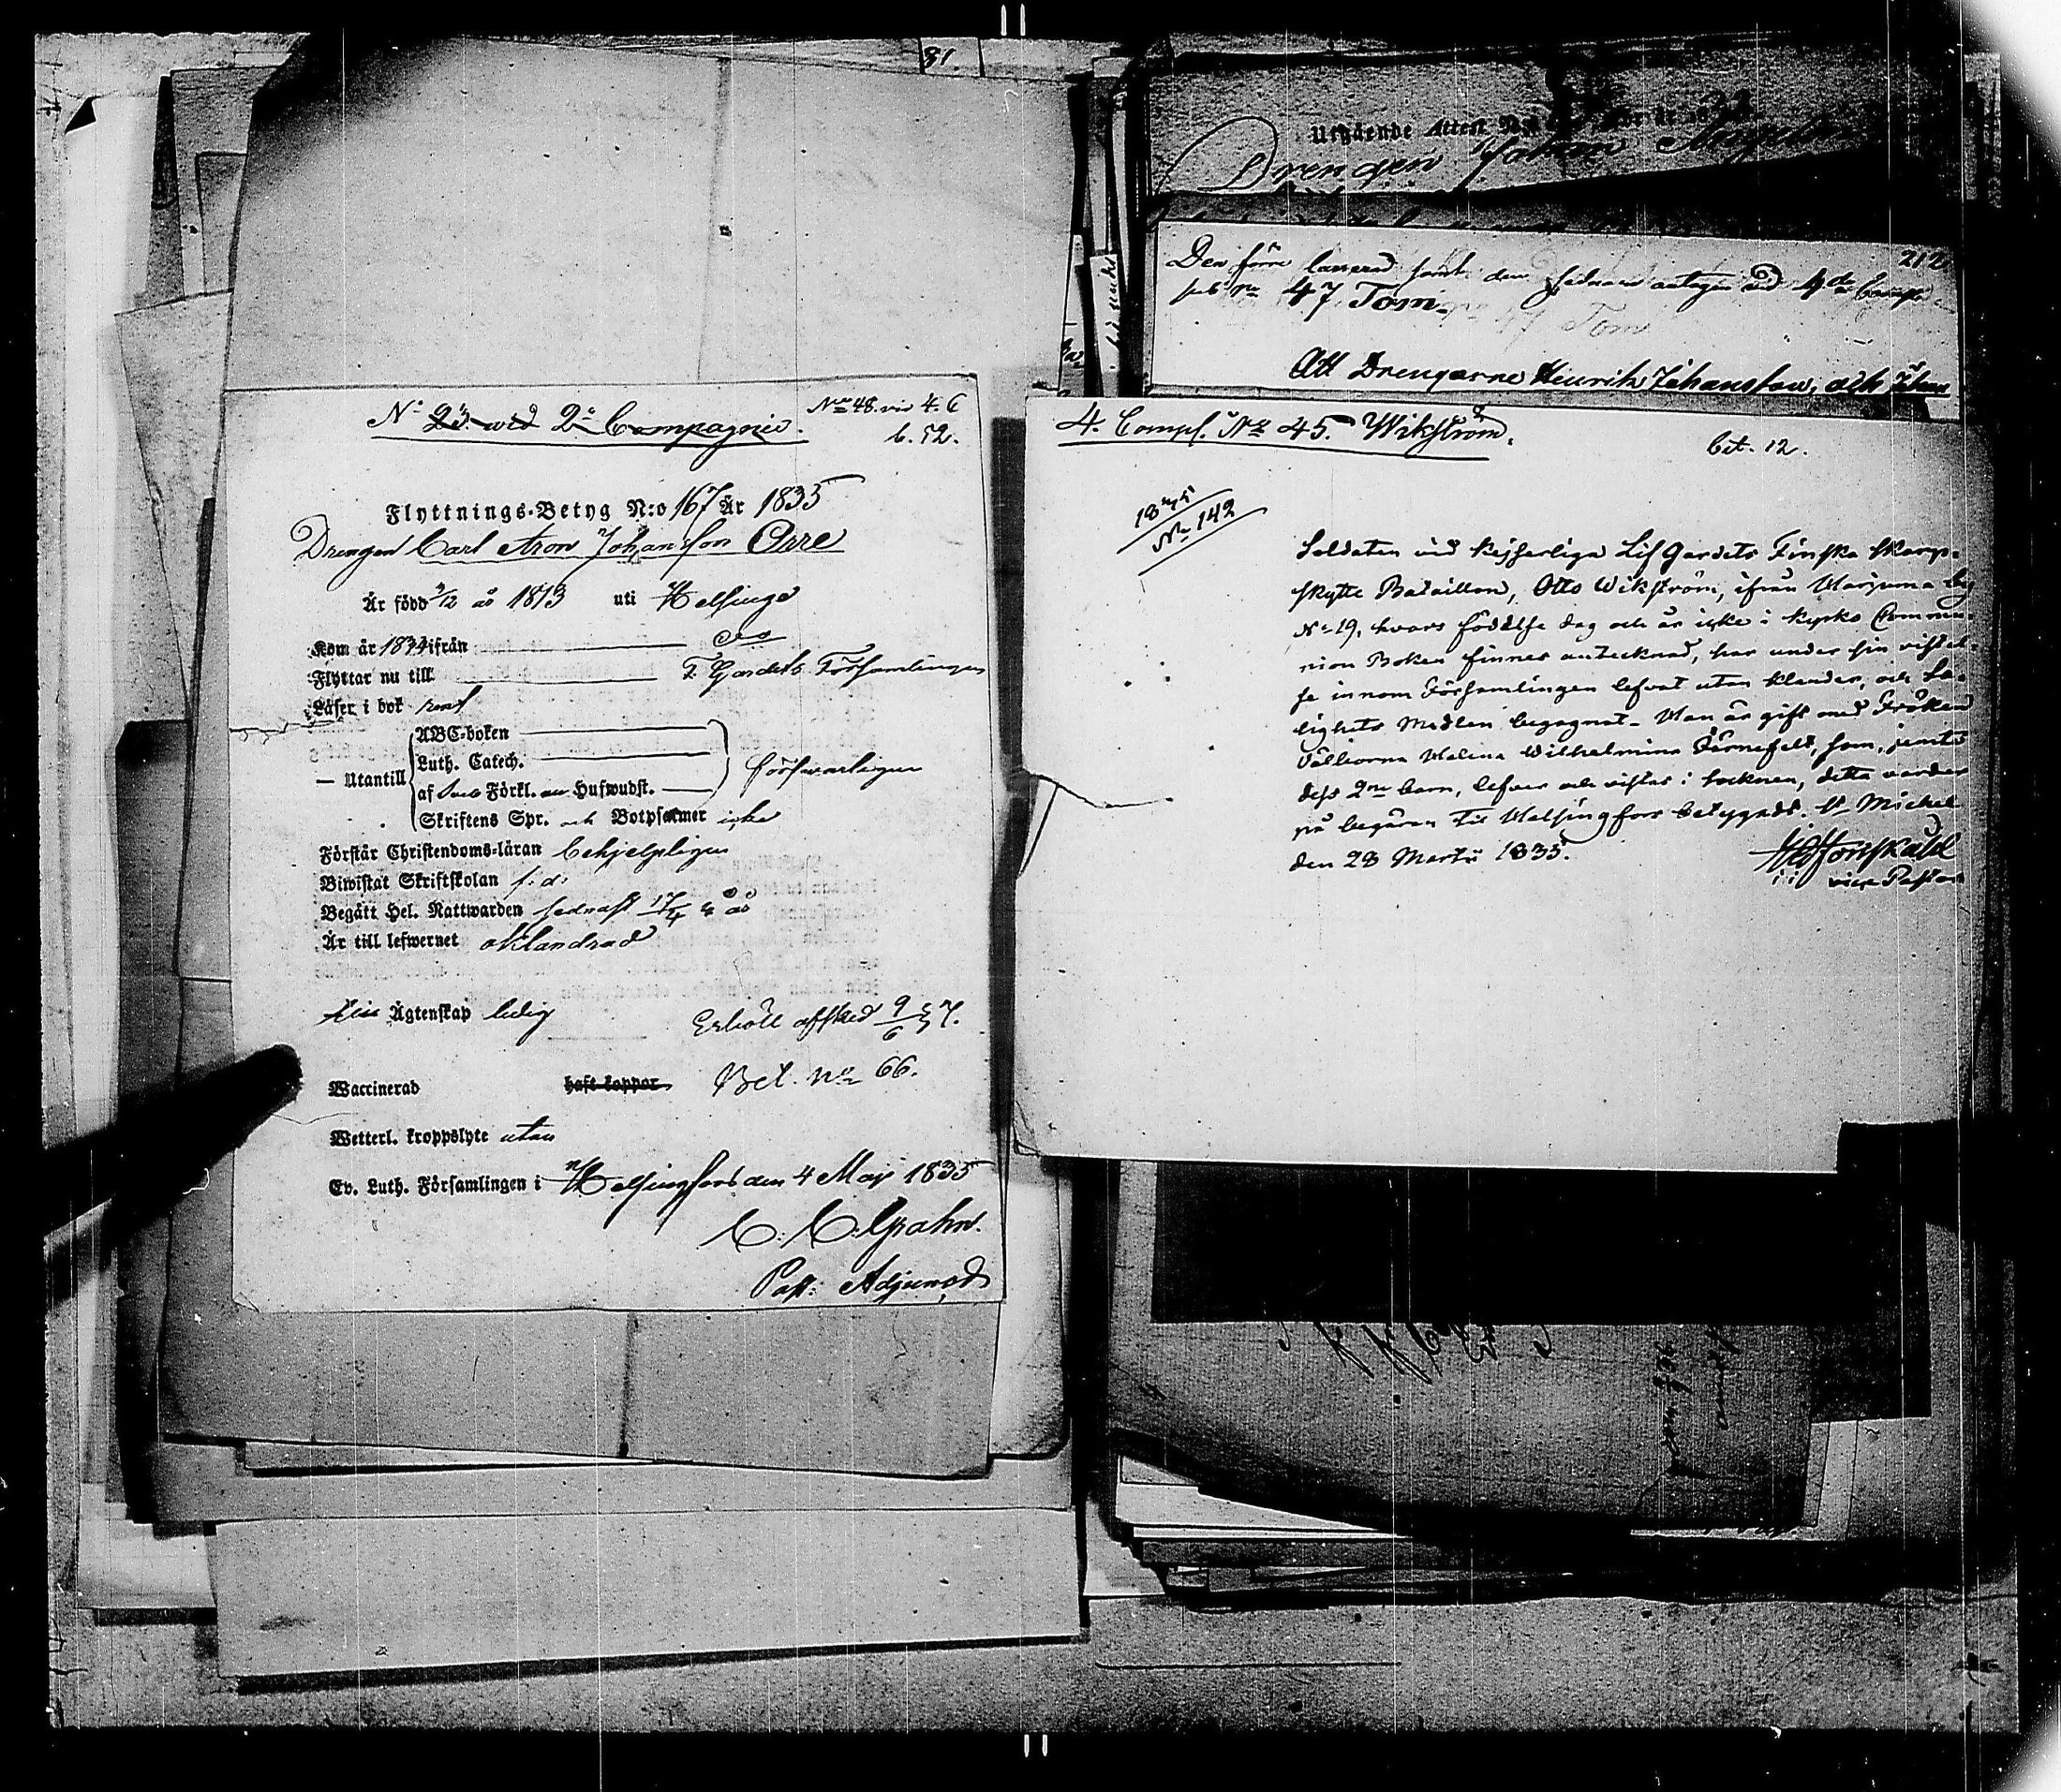 81.
No 23 wid 2a Compagnie.
No 48. vid 4. C
b. 52.
Flyttnings-Betyg N:o 167 År 1835
Drengen Carl Aron Johansson Orre
Är född 2/12 år 1813 uti Helsinge
Kom år 1834 ifrån do
Flyttar nu till F. Gardets Församlingen
Läser i bok rent
— Utantill
ABC-boken
Luth. Catech.
af Förkl. Hufwudst.
försvarligen
Skriftens Spr. och Botpsalmer icke
Förstår Christendoms-läran behjelpligen
Biwistat Skriftskolan f. d.
Begått Hel. Nattwarden sednast 17/4 d. å
Är till lefwernet oklandrad
Ägtenskap ledig
Erhöll afsked 9/6 37.
Waccinerad haft koppor. Bet. No 66.
Wetterl. kroppslyte utan
Ev. Luth. Församlingen i Helsingfors den 4 Maji 1835
C. C. Grahn.
Past: Adjunct
Utgående Attest
Drengen Johan
212
Den förre casserad samt den sednare antagen vid 4de Comp.
sub No 47 Tom.
Att Drengarne Henrik Johansson, och Johan
4. Comp. No 45. Wikström.
bet. 12.
1835
No 142
Soldaten vid Kejserliga Lif Gardets Finska Skarp-
skytte Bataillon, Otto Wikström, ifrån Harjuma by
No 19, hvars födelse dag och år icke i Kyrko Commu-
nion Boken finnes antecknad, har under sin vistel-
se innom Församlingen lefvat utan klander, och Sa-
lighets Medlen begagnat. Han är gift med Fröken
Helena Wilhelmina Järnefelt, som, jemte
dess 2ne barn, lefver och vistas i socknen, detta varder
på begäran till Helsingfors betygadt. St Michel
den 28 Martii 1835.
vice Pastor